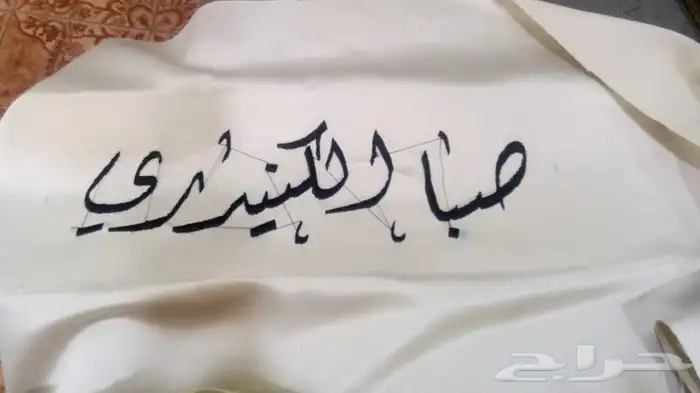 صبا الكنيدري
حراج